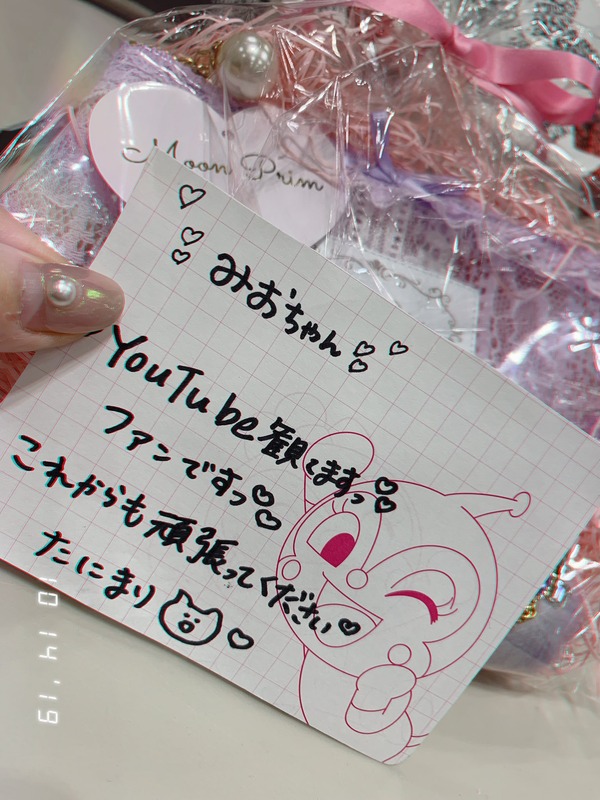 Moon Prim
みおちゃん♡♡♡
YouTube観てますっ♡♡
ファンですっ♡♡
これからも頑張ってください♡
たにまり♡
10 14 '19